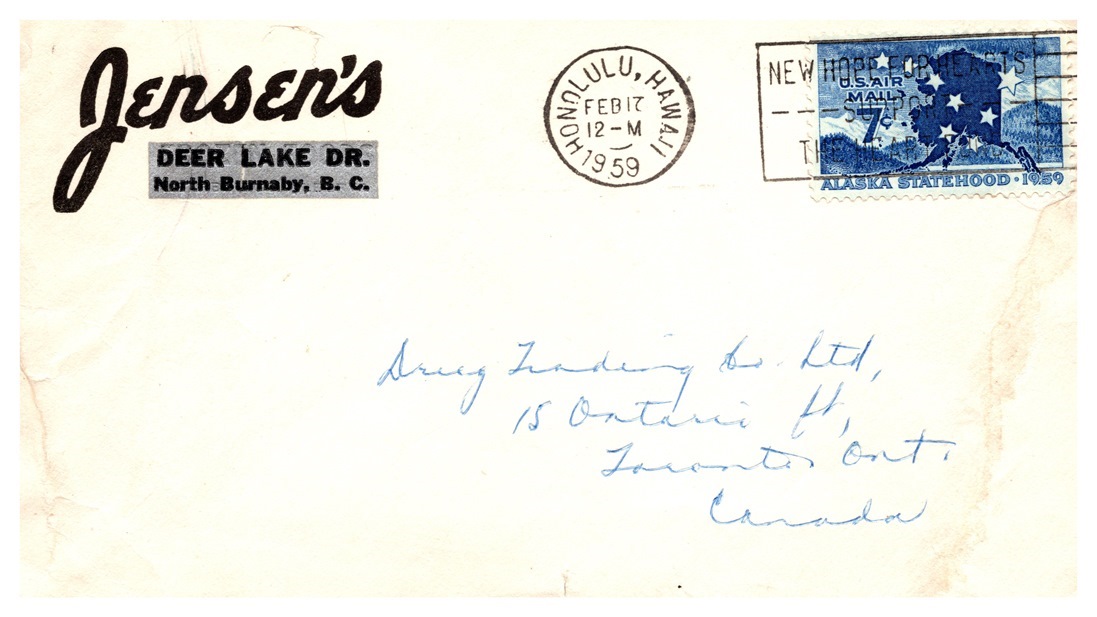 Jensen's
DEER LAKE DR.
North Burnaby, B. C.
HONOLULU, HAWAII
FEB 17
12-M
1959
NEW HOPE FOR HEARTS
SUPPORT
THE HEART FUND
U.S. AIR
MAIL
7¢
ALASKA STATEHOOD · 1959
Drug Trading Co. Ltd,
15 Ontario St,
Toronto Ont.
Canada